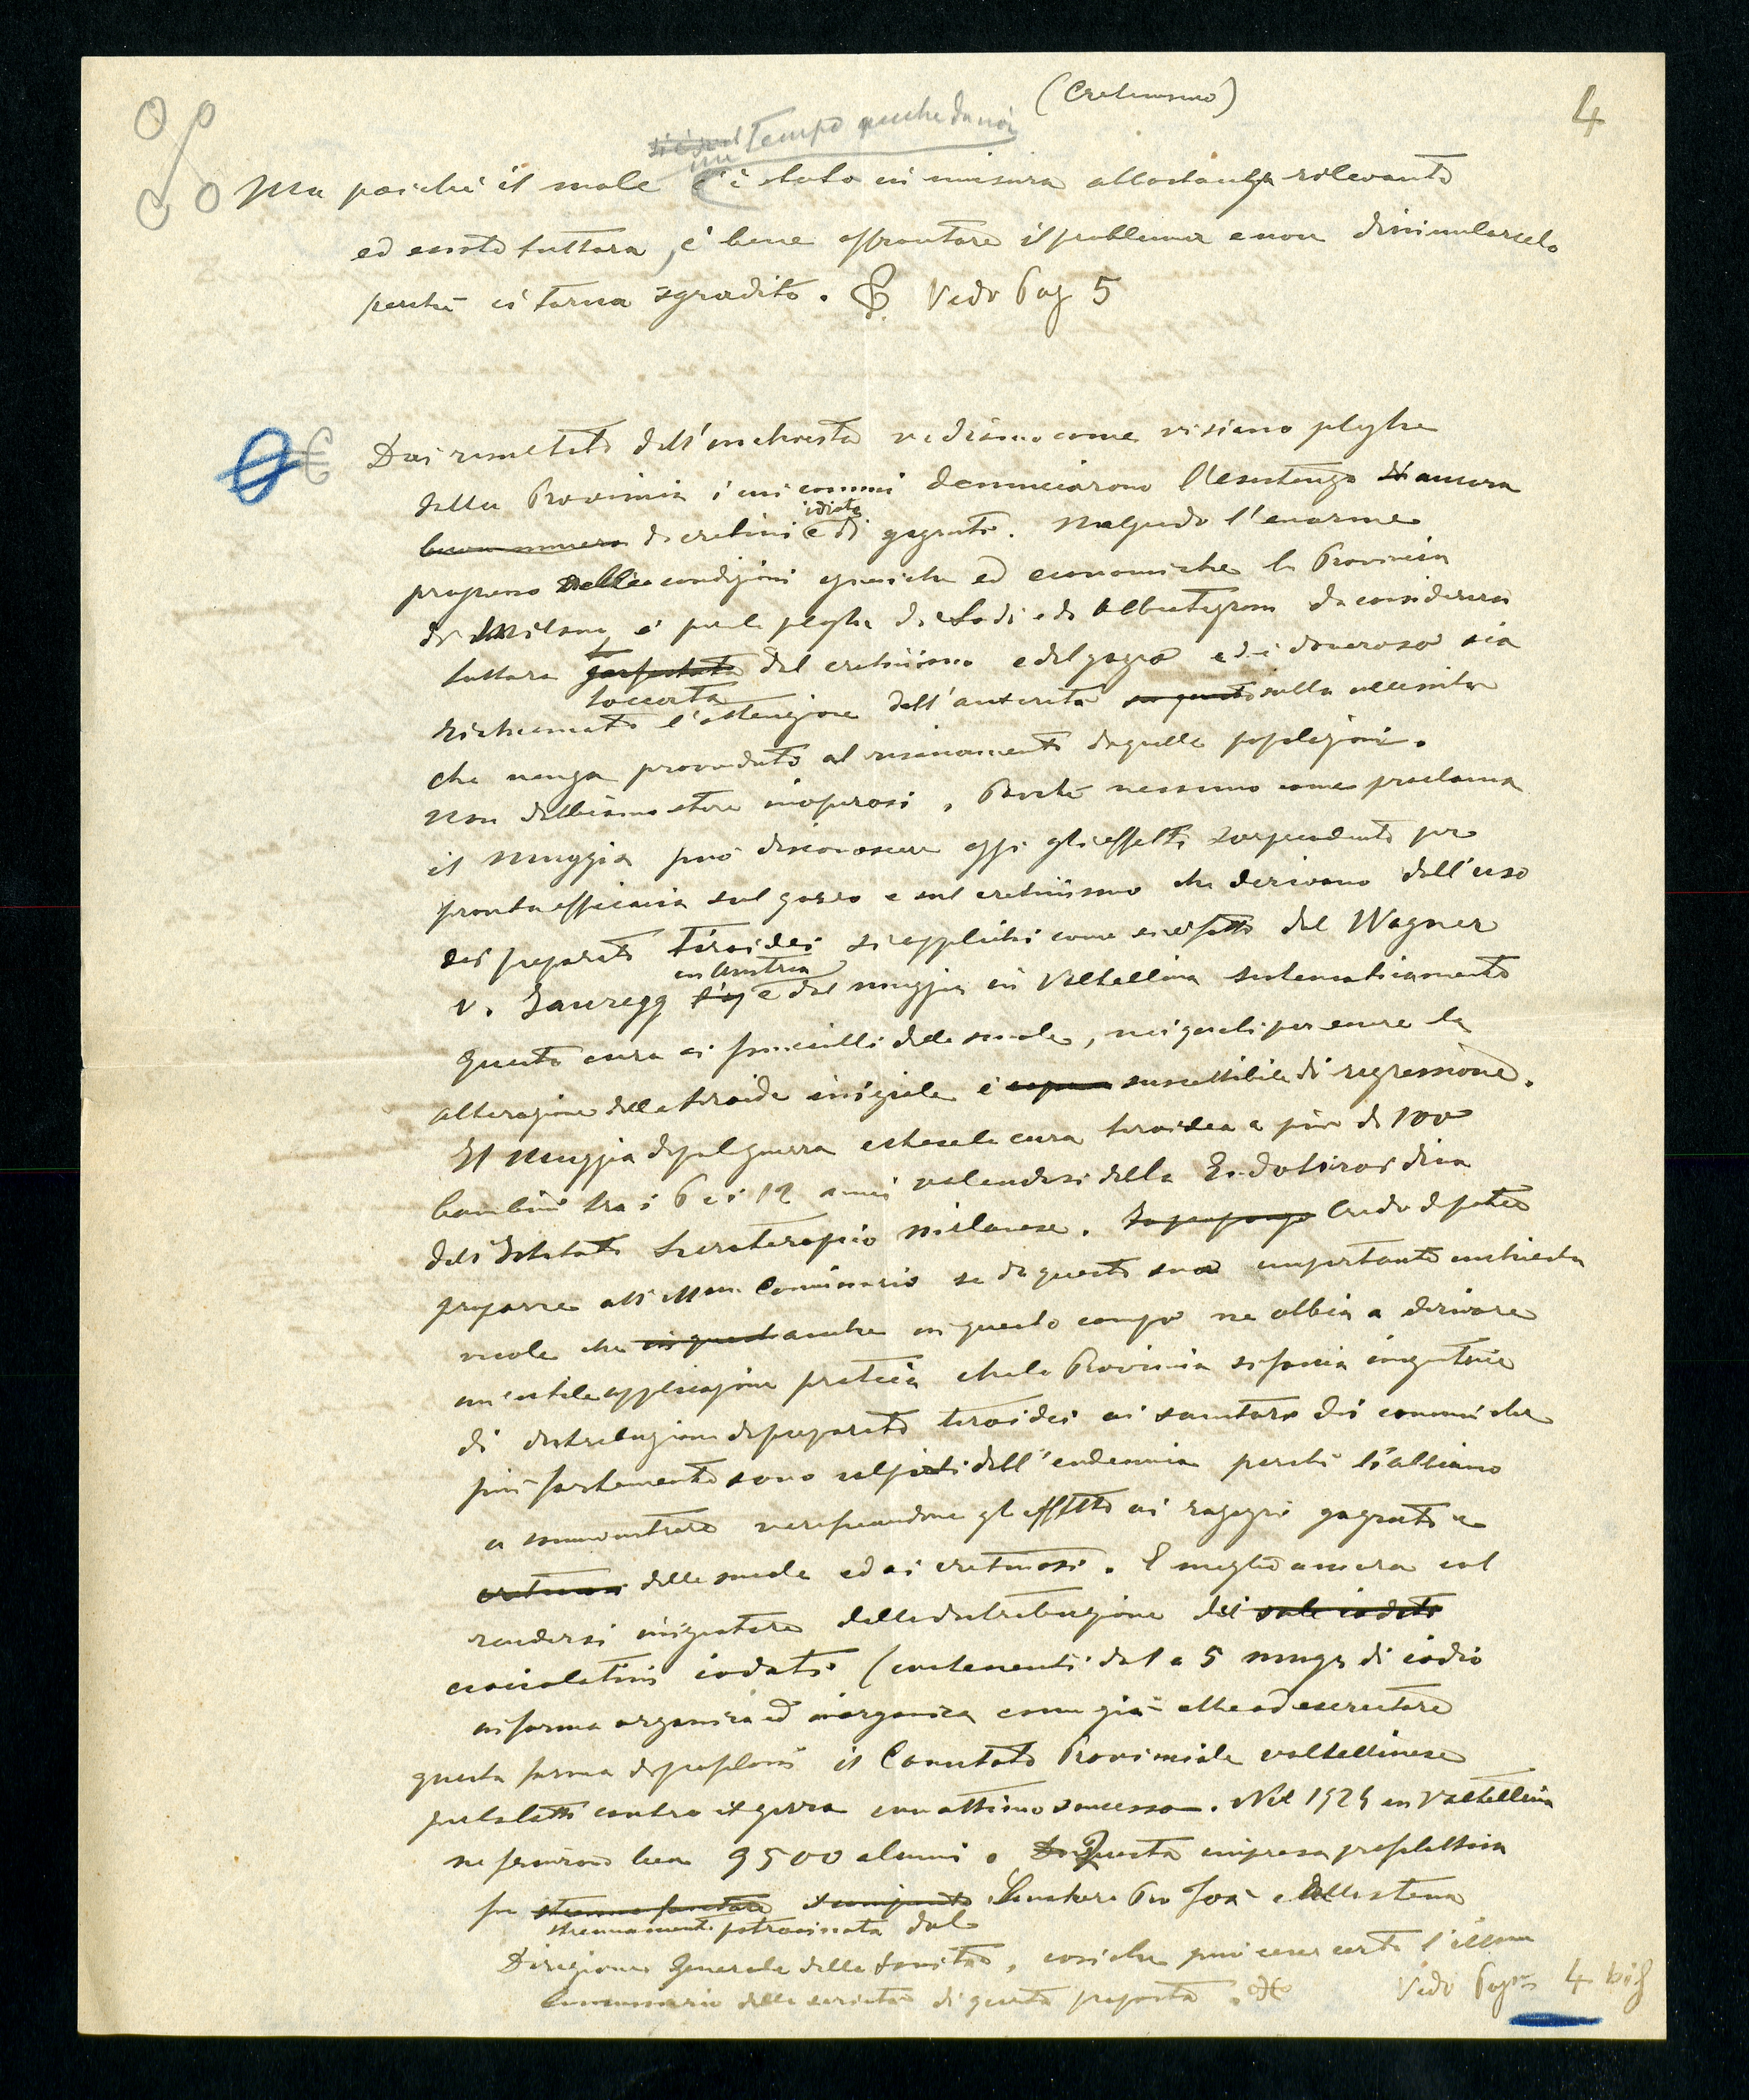 (Cretinismo)
4
un Tempo anche da noi
Ma poichè il male c'è stato in misura abbastanza rilevante
ed esiste tuttora, è bene affrontare il problema e non dissimularselo
perchè ci torna sgradito. Vedo Pag 5
Dai risultati dell'inchiesta vediamo come vi siano plaghe
della Provincia i cui comuni denunciarono l'esistenza di ancora
buon numero di cretini idioti e di gozzuti. Malgrado l'enorme
progresso delle condizioni igieniche ed economiche la Provincia
di Milano è per le plaghe di Lodi e di Abbiategrasso da considerarsi
tuttora toccata dal cretinismo e dal gozzo ed è doveroso sia
richiamata l'attenzione dell'autorità sulla necessità
che venga provveduto al risanamento di quelle popolazioni.
Non dobbiamo stare inoperosi. Poichè nessuno come proclama
il Muggia può disconoscere oggi gli effetti sorprendenti per
pronta efficacia sul gozzo e sul cretinismo che derivano dall'uso
dei preparati tiroidei si applichi come si è fatto dal Wagner
v. Jauregg in Austria e dal Muggia in Valtellina sistematicamente
questa cura ai fanciulli delle scuole, nei quali per essere la
alterazione della tiroide iniziale è suscettibile di regressione.
Il Muggia dopo la guerra estese la cura tiroidea a più di 100
bambini tra i 6 e i 12 anni valendosi della Endotiroidina
dell'Istituto Sieroterapico milanese. Credo di poter
proporre all'Illmo. Commissario se di questa sua importante inchiesta
vuole che anche in questo campo ne abbia a derivare
un'utile applicazione pratica che la Provincia si faccia iniziatrice
di distribuzione di preparati tiroidei ai sanitari dei comuni che
più fortemente sono colpiti dall'endemia perchè li abbiano
a somministrare verificandone gli effetti ai ragazzi gozzuti e
delle scuole ed ai cretinosi. E meglio ancora col
rendersi iniziatore della distribuzione dei sale iodato
cioccolatini iodati (contenenti dal a 5 mmgr di iodio
in forma organica ed inorganica come già ebbe ad esercitare
questa forma di profilassi il Comitato Provinciale valtellinese
per la lotta contro il gozzo con ottimo successo. Nel 1924 in Valtellina
ne fruirono ben 9500 alunni. Questa impresa profilattica
fu strenuamente patrocinata dal Senatore Pio Foà e dalla stessa
Direzione Generale della Sanità, cosichè può esser certo l'Illmo
Commissario della serietà di questa proposta.
Vedo Pag 4 bis